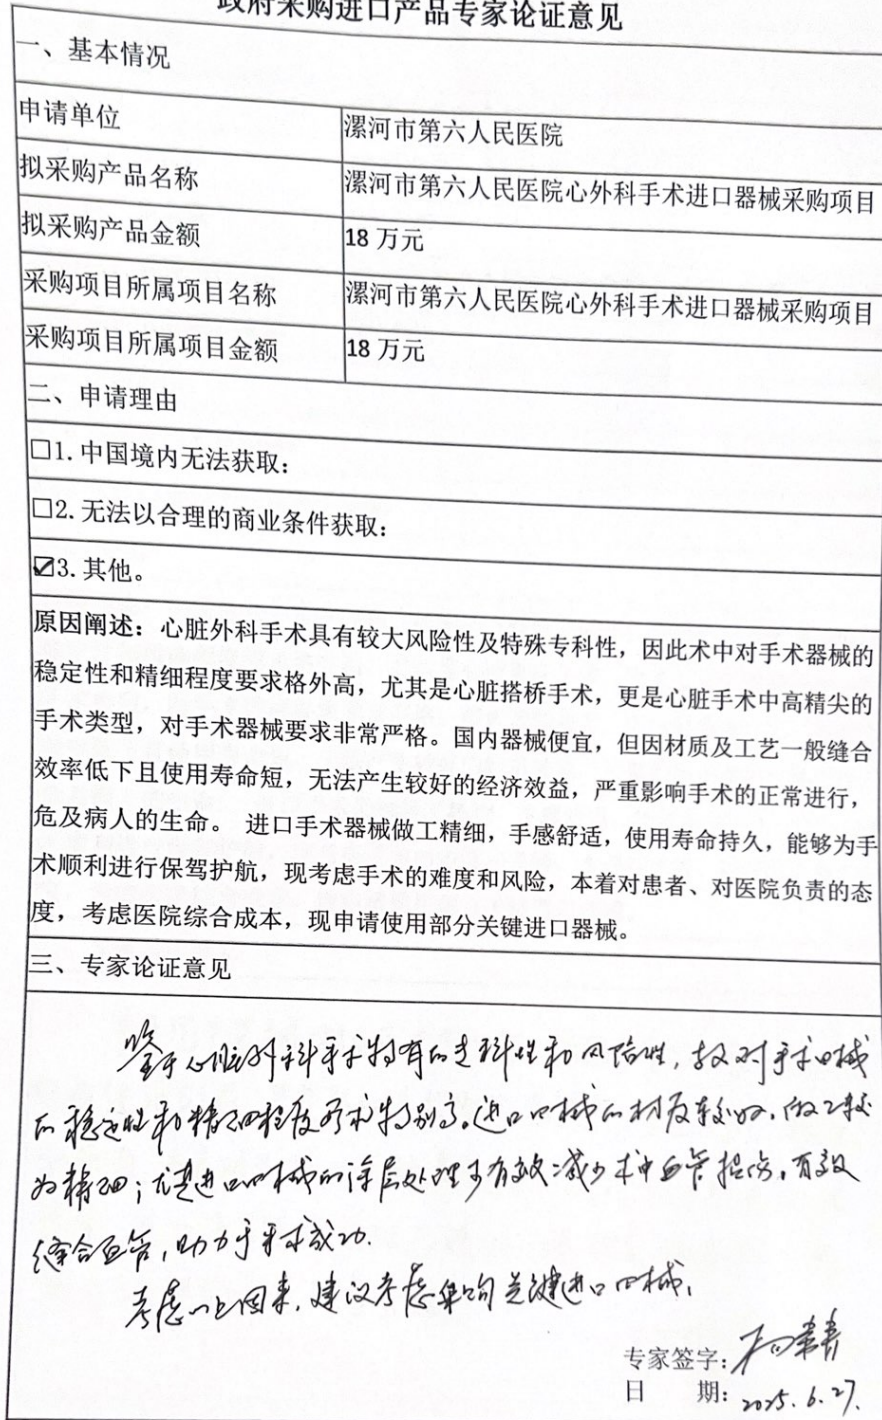 政府采购进口产品专家论证意见
一、基本情况
申请单位
漯河市第六人民医院
拟采购产品名称
漯河市第六人民医院心外科手术进口器械采购项目
拟采购产品金额
18万元
采购项目所属项目名称
漯河市第六人民医院心外科手术进口器械采购项目
采购项目所属项目金额
18万元
二、申请理由
☐1.中国境内无法获取:
☐2.无法以合理的商业条件获取:
☑3.其他。
原因阐述:心脏外科手术具有较大风险性及特殊专科性,因此术中对手术器械的
稳定性和精细程度要求格外高,尤其是心脏搭桥手术,更是心脏手术中高精尖的
手术类型,对手术器械要求非常严格。国内器械便宜,但因材质及工艺一般缝合
效率低下且使用寿命短,无法产生较好的经济效益,严重影响手术的正常进行,
危及病人的生命。 进口手术器械做工精细,手感舒适,使用寿命持久,能够为手
术顺利进行保驾护航,现考虑手术的难度和风险,本着对患者、对医院负责的态
度,考虑医院综合成本,现申请使用部分关键进口器械。
三、专家论证意见
鉴于心脏外科手术特有的专科性和风险性,故对手术器械
的稳定性和精细程度要求特别高。进口器械的材质较好,做工较
为精细;尤其进口器械的涂层处理可有效减少术中血管损伤,有效
缝合血管,助力于手术成功.
考虑以上因素,建议考虑采购关键进口器械.
专家签字:
日 期: 2025.6.27.